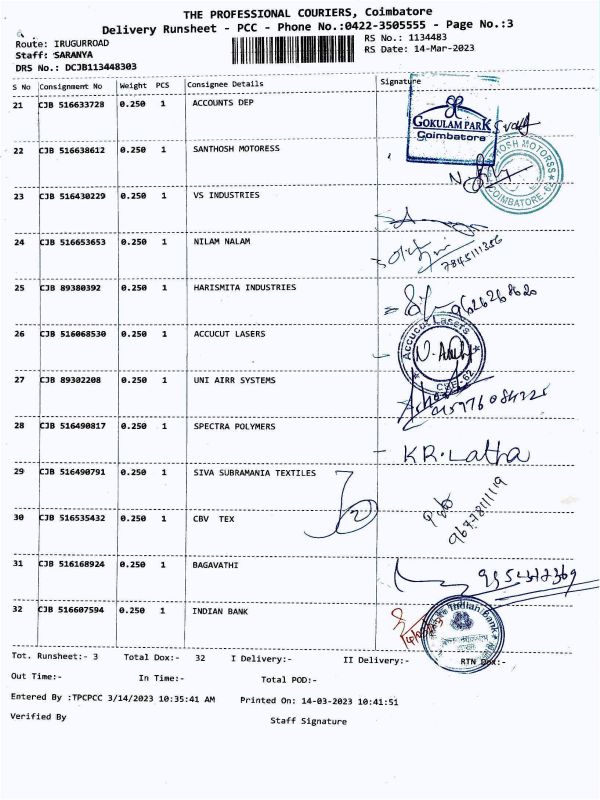 THE PROFESSIONAL COURIERS, Coimbatore
Delivery Runsheet - PCC - Phone No.:0422-3505555 - Page No.:3
Route: IRUGURROAD
RS No.: 1134483
Staff: SARANYA
RS Date: 14-Mar-2023
DRS No.: DCJB113448303
S No Consignment No Weight PCS Consignee Details Signature
21 CJB 516633728 0.250 1 ACCOUNTS DEP
GOKULAM PARK
Coimbatore
22 CJB 516638612 0.250 1 SANTHOSH MOTORESS
23 CJB 516430229 0.250 1 VS INDUSTRIES
24 CJB 516653653 0.250 1 NILAM NALAM
7845111356
25 CJB 89380392 0.250 1 HARISMITA INDUSTRIES
9626268620
26 CJB 516068530 0.250 1 ACCUCUT LASERS
Accucut Lasers
CBE-62
27 CJB 89302208 0.250 1 UNI AIRR SYSTEMS
28 CJB 516490817 0.250 1 SPECTRA POLYMERS
KR.Latha
29 CJB 516490791 1 0.250 SIVA SUBRAMANIA TEXTILES
30 CJB 516535432 0.250 1 CBV TEX
31 CJB 516168924 0.250 1 BAGAVATHI
32 CJB 516607594 0.250 1 INDIAN BANK
Indian Bank
Tot. Runsheet:- 3 Total Dox:- 32 I Delivery:- II Delivery:- RTN Dox:-
Out Time:- In Time:- Total POD:-
Entered By :TPCPCC 3/14/2023 10:35:41 AM Printed On: 14-03-2023 10:41:51
Verified By Staff Signature